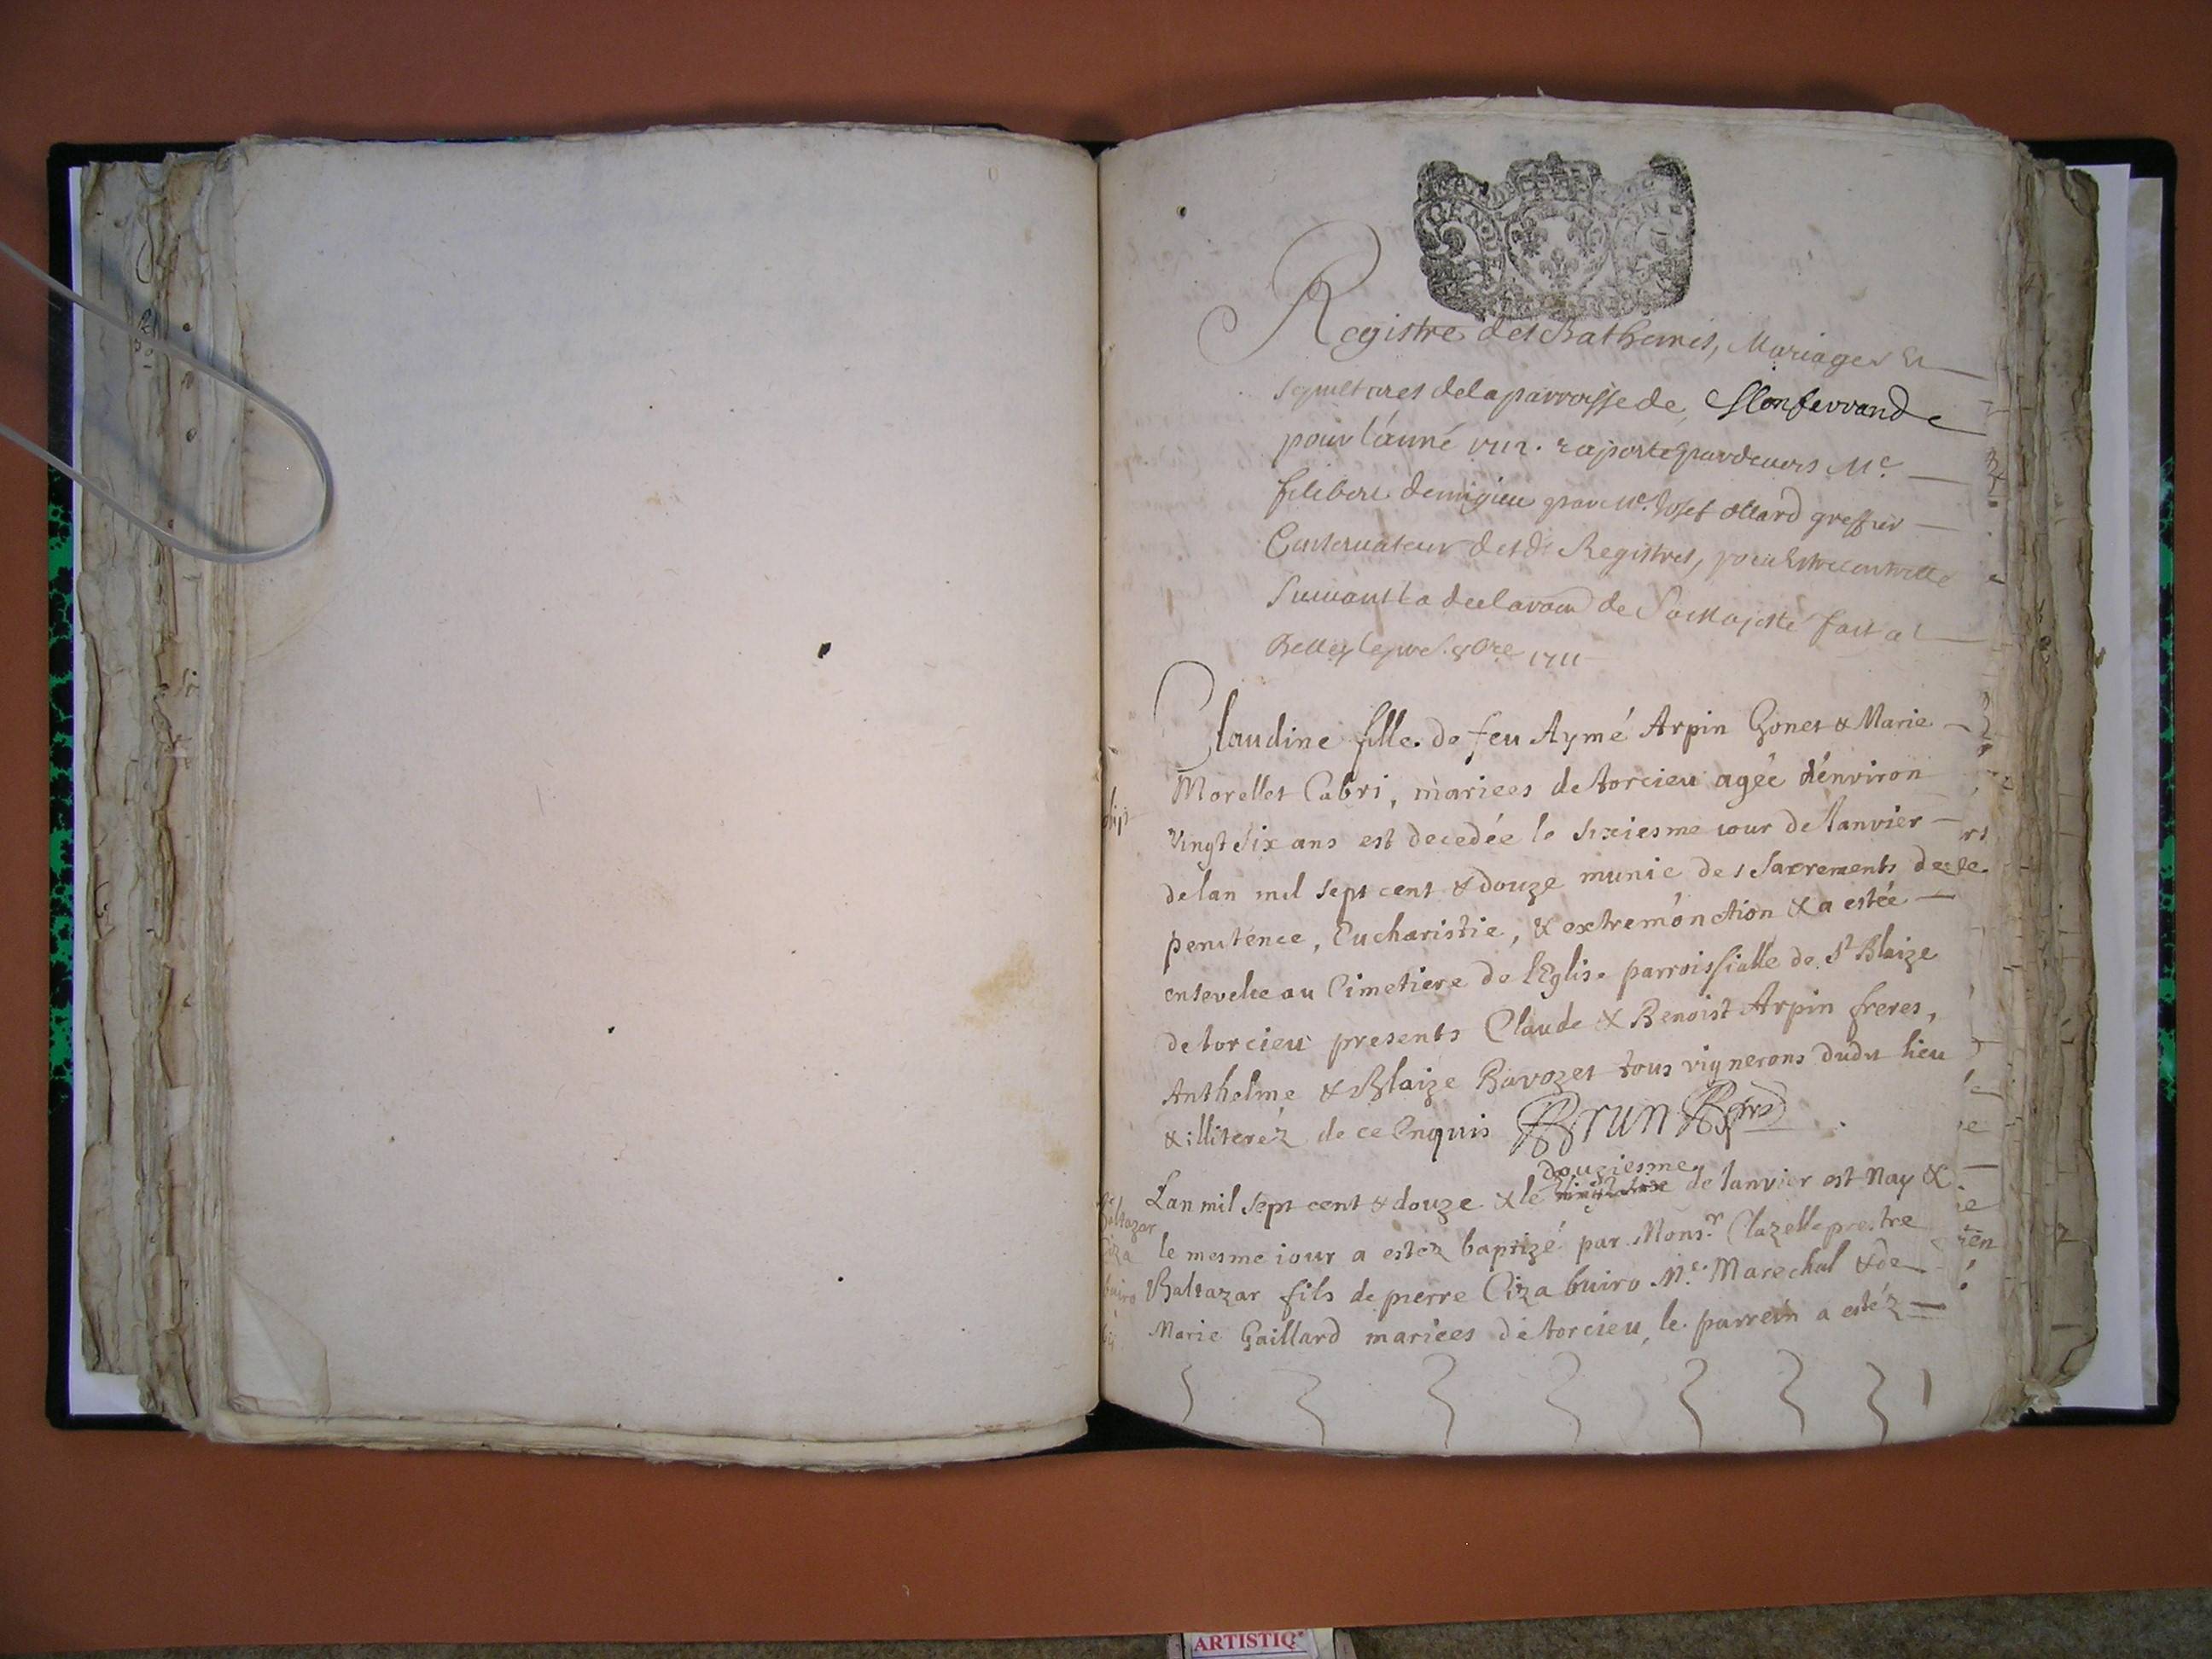 Registre des Bathemes, Mariages Et
sepultures de la parroisse de, Monferrand
pour l'anné 1712. raporté pardevers Me
filibert demigieu par Me. Josef ollard greffier
Conservateur desds Registres, pour Estre
Suivant la declaraon de Sa Majesté fait a
Belley le 8bre 1711
Claudine fille de feu Aymé Arpin Gonet & Marie
Morellet Cabri, mariees de torcieu agée d'environ
vingt six ans est decedée le sixiesme iour de Ianvier
de lan mil sept cent & douze munie des Sacrements de
penitence, Eucharistie, & extremonction & a estée
ensevelie au Cimetiere de l'Eglise parroissialle de St Blaize
de torcieu presents Claude & Benoist Arpin freres,
Anthelme & Blaize Bavozet tous vignerons dudit lieu
& illiterez de ce Enquis Brun
douziesme
Lan mil sept cent & douze & le de Ianvier est Nay &
le mesme iour a estez baptizé par Monsr. Clazelle prestre
Baltazar fils de pierre Ciza buiro Me. Marechal & de
Marie Gaillard mariees de torcieu, le parrein a estéz
Baltazar
Ciza
buiro
ARTISTIQ